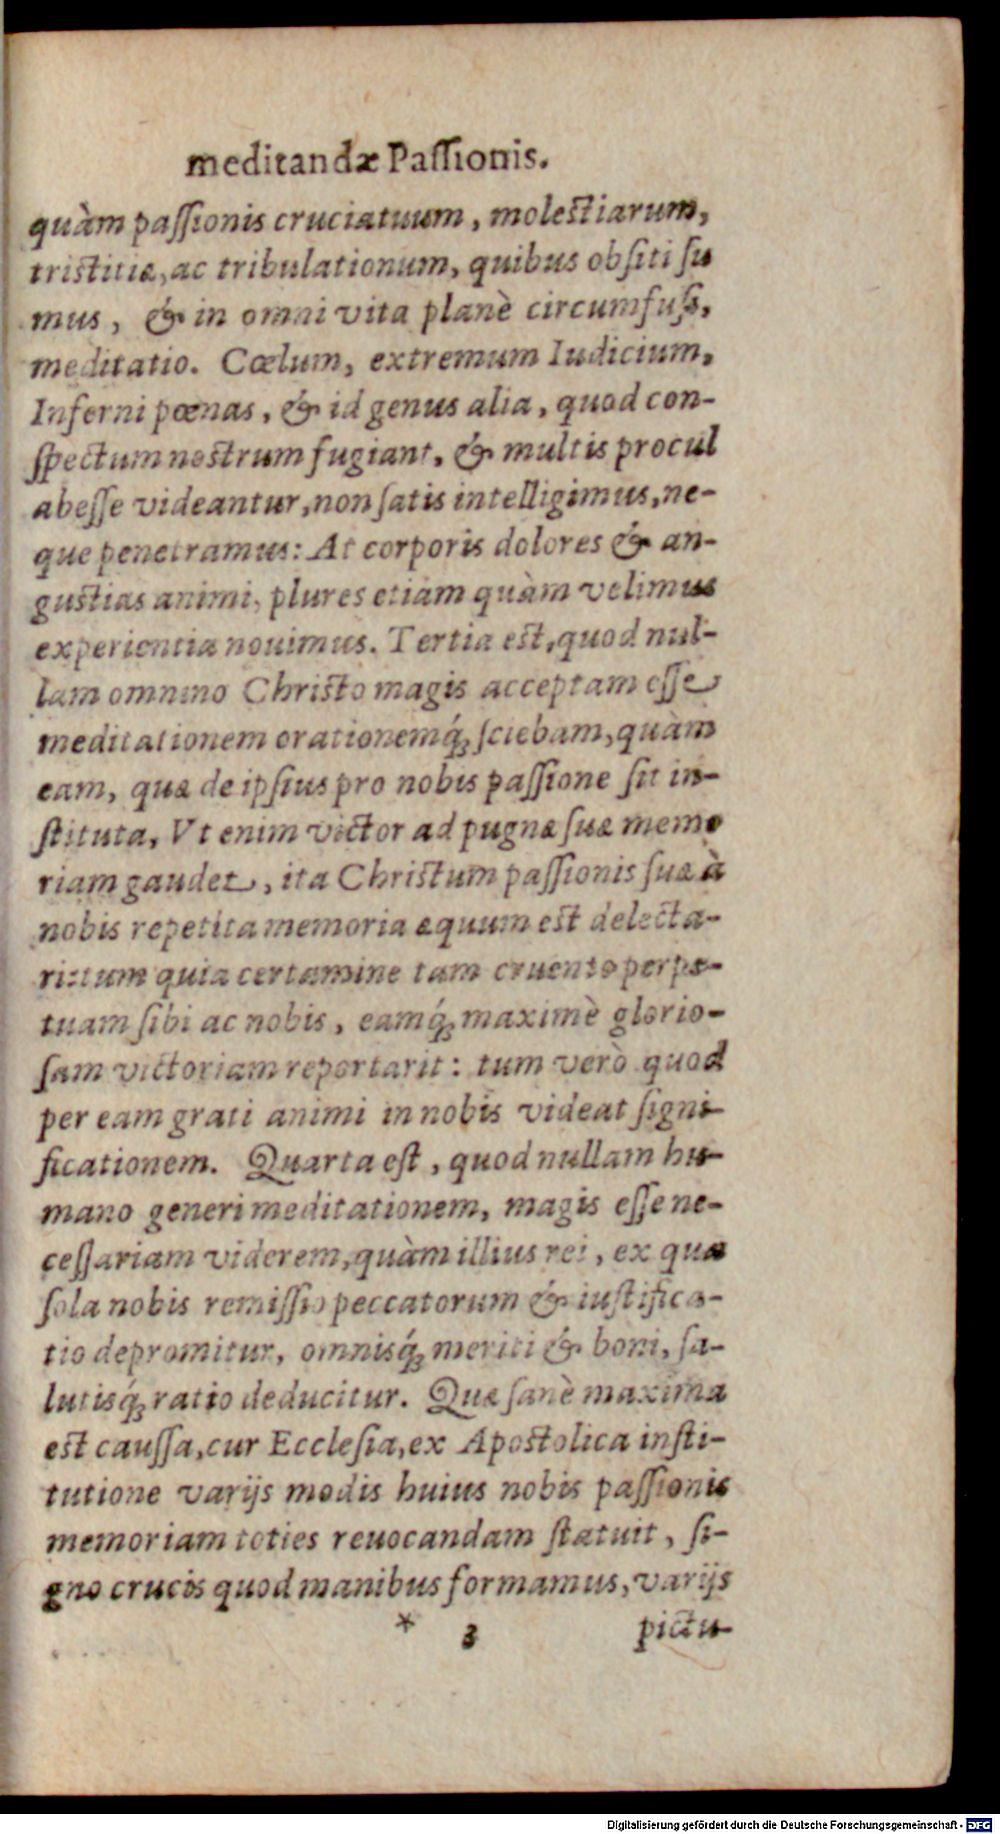 meditandæ Paſſionis.
quàm paſſionis cruciatuum, moleſtiarum,
triſtitiæ, ac tribulationum, quibus obſiti ſu
mus, & in omni vita planè circumfuſi,
meditatio. Cœlum, extremum Iudicium,
Inferni pœnas, & id genus alia, quod con-
ſpectum noſtrum fugiant, & multis procul
abeſſe videantur, non ſatis intelligimus, ne-
que penetramus: At corporis dolores & an-
guſtias animi, plures etiam quàm velimus
experientia nouimus. Tertia eſt, quod nul-
lam omnino Chriſto magis acceptam eſſe
meditationem orationemq́; ſciebam, quàm
eam, quæ de ipſius pro nobis paſſione ſit in-
ſtituta, Vt enim victor ad pugnæ ſuæ memo
riam gaudet, ita Chriſtum paſſionis ſuæ à
nobis repetita memoria æquum eſt delecta-
ri: tum quia certamine tam cruento perpe-
tuam ſibi ac nobis, eamq́; maximè glorio-
ſam victoriam reportarit: tum verò quod
per eam grati animi in nobis videat ſigni-
ficationem. Quarta eſt, quod nullam hu-
mano generi meditationem, magis eſſe ne-
ceſſariam viderem, quàm illius rei, ex qua
ſola nobis remiſſio peccatorum & iuſtifica-
tio depromitur, omnisq́; meriti & boni, ſa-
lutisq́; ratio deducitur. Quæ ſanè maxima
eſt cauſſa, cur Eccleſia, ex Apoſtolica inſti-
tutione varijs modis huius nobis paſſionis
memoriam toties reuocandam ſtatuit, ſi-
gno crucis quod manibus formamus, varijs
* 3 pictu-
Digitalisierung gefördert durch die Deutsche Forschungsgemeinschaft - DFG